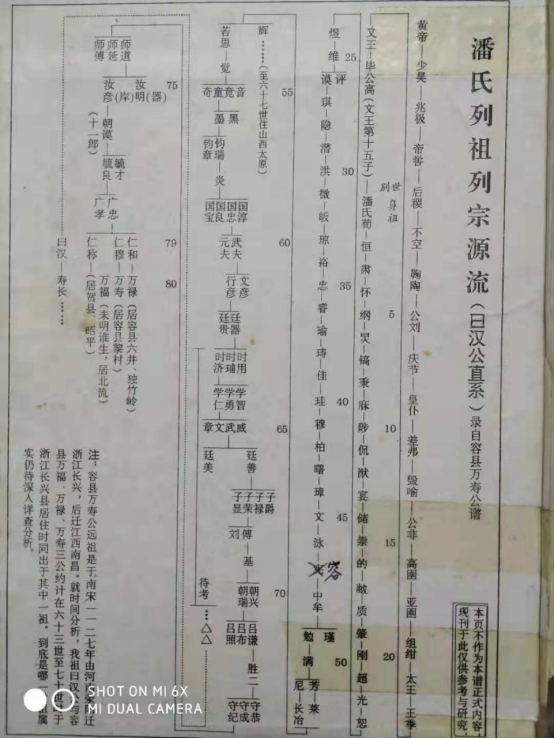 潘氏列祖列宗源流(曰汉公直系)录自容县万寿公谱
本页不作为本谱正式内容
现刊于此仅供参考与研究
黄帝—少昊 兆极 帝喾—后稷—不空—鞠陶—公刘 庆节—皇仆—差弗—毁喻—公非 高圉 亚圉—组绀 太王—王季
别世
身祖
5 10 15 20
文王—毕公高(文王第十五子)—潘氏荀—恒—肃—怀—纲—炅—镐—秉—庥—陟—侃—猷—宴—储—崇—的—献—质—肇—刚—超—光—恕
25 30 35 40 45 50
评
煜 维 谟—琪—隐—潜—洪—微—皈—琼—裕—忠—睿—瑜—琦—佳—珪—穆—柏—曙—璋—文—泳 容 中牟
瑾
勉—满
芳—莱
尼—长冶
辉……(至六十七世住山西太原)
55 60 65 70
若思—觉
音
竟
童
奇
黑
墨
钧瑞—炎
钧章
国淳
国忠
国良
国宝
武夫
元夫
文彦
行彦
廷器
廷贵
时用
时瑞
时济
学智
学勇
学仁
威
武
文
章
廷善
廷美
子爵
子禄
子荣
子显
傅
刘
基
朝兴
朝瑞
吕谦
吕布
吕照
胜二
守恭
守成
守纪
待考
…△△
师道
师延
师傅
75 79 80
汝明(器)
汝彦(岸)
朝谟(十一郎)
毓才
毓良
广忠
广孝
仁和—万禄(居容县六井、独竹岭)
仁穆—万寿(居容县黎村)
万福(未明谁生,居北流)
仁称—(居贺县、昭平)
曰汉—寿长……
注:容县万寿公远祖是于南宋一一二七年由河 迁
浙江长兴,后迁江西南昌。就时间分析,我祖曰汉 与容
县万福、万禄、万寿三公约计在六十三世至七十 世于
浙江长兴县居住时间出于其中一祖,到底是哪一 属
实仍待深入详查分析。
SHOT ON MI 6X
MI DUAL CAMERA